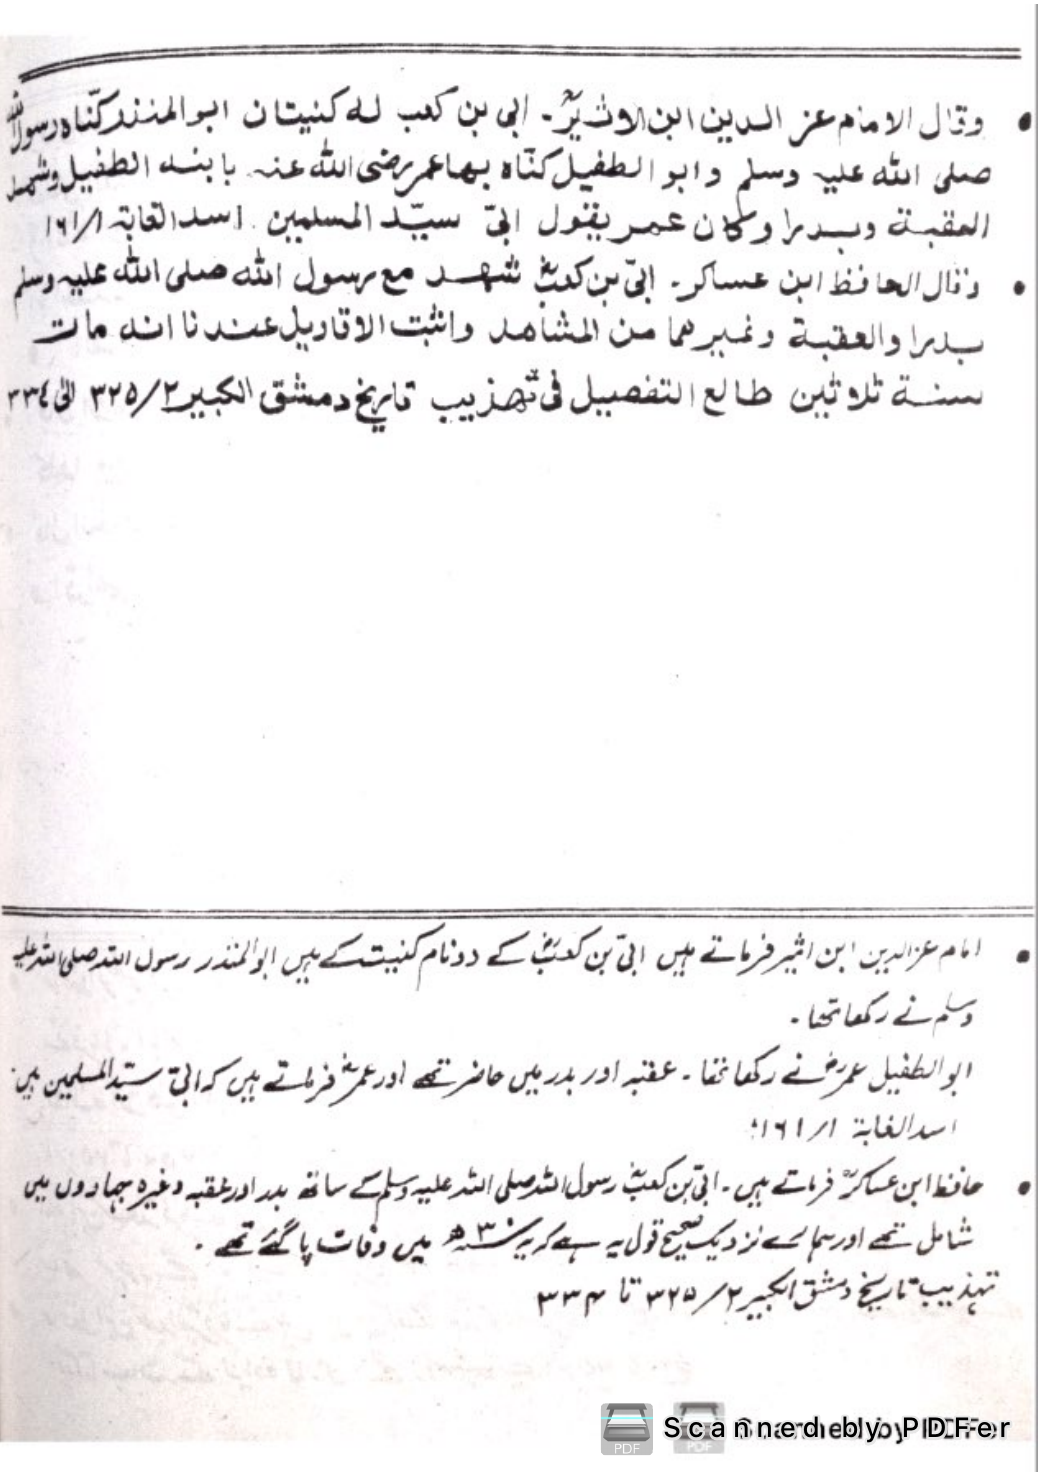 • وقال الامام عز الدين ابن الاثيرؒ۔ ابي بن كعب له كنيتان ابو المنذر كنّاه رسول الله
صلى الله عليه وسلم وابو الطفيل كنّاه بها عمر رضى الله عنه بابنه الطفيل وشهد
العقبة وبدرا وكان عمر يقول ابىّ سيّد المسلمين. اسد الغابة ١/١٦١
• وقال الحافظ ابن عساكر۔ ابىّ بن كعبؓ شهد مع رسول الله صلى الله عليه وسلم
بدرا والعقبة وغيرهما من المشاهد واثبت الاقاويل عندنا انه مات
سنة ثلاثين طالع التفصيل فى تهذيب تاريخ دمشق الكبير ٢/٣٢٥ الى ٣٣٤
• امام عزالدین ابن اثیر فرماتے ہیں ابیّ بن کعبؓ کے دو نام کنیت کے ہیں ابوالمنذر رسول اللہ صلی اللہ علیہ
وسلم نے رکھا تھا۔
ابو الطفیل عمرؓ نے رکھا تھا۔ عقبہ اور بدر میں حاضر تھے اور عمرؓ فرماتے ہیں کہ ابیّ سیّد المسلمین ہیں۔
اسد الغابة ١/١٦١؛
• حافظ ابن عساکرؒ فرماتے ہیں۔ ابیّ بن کعبؓ رسول اللہ صلی اللہ علیہ وسلم کے ساتھ بدر اور عقبہ وغیرہ جہادوں میں
شامل تھے اور ہمارے نزدیک صحیح قول یہ ہے کہ یہ ۳۰ھ میں وفات پا گئے تھے۔
تہذیب تاریخ دمشق الکبیر ۲/۳۲۵ تا ۳۳۴
PDF PDF Scanned by PDFer Scanned by PDFer